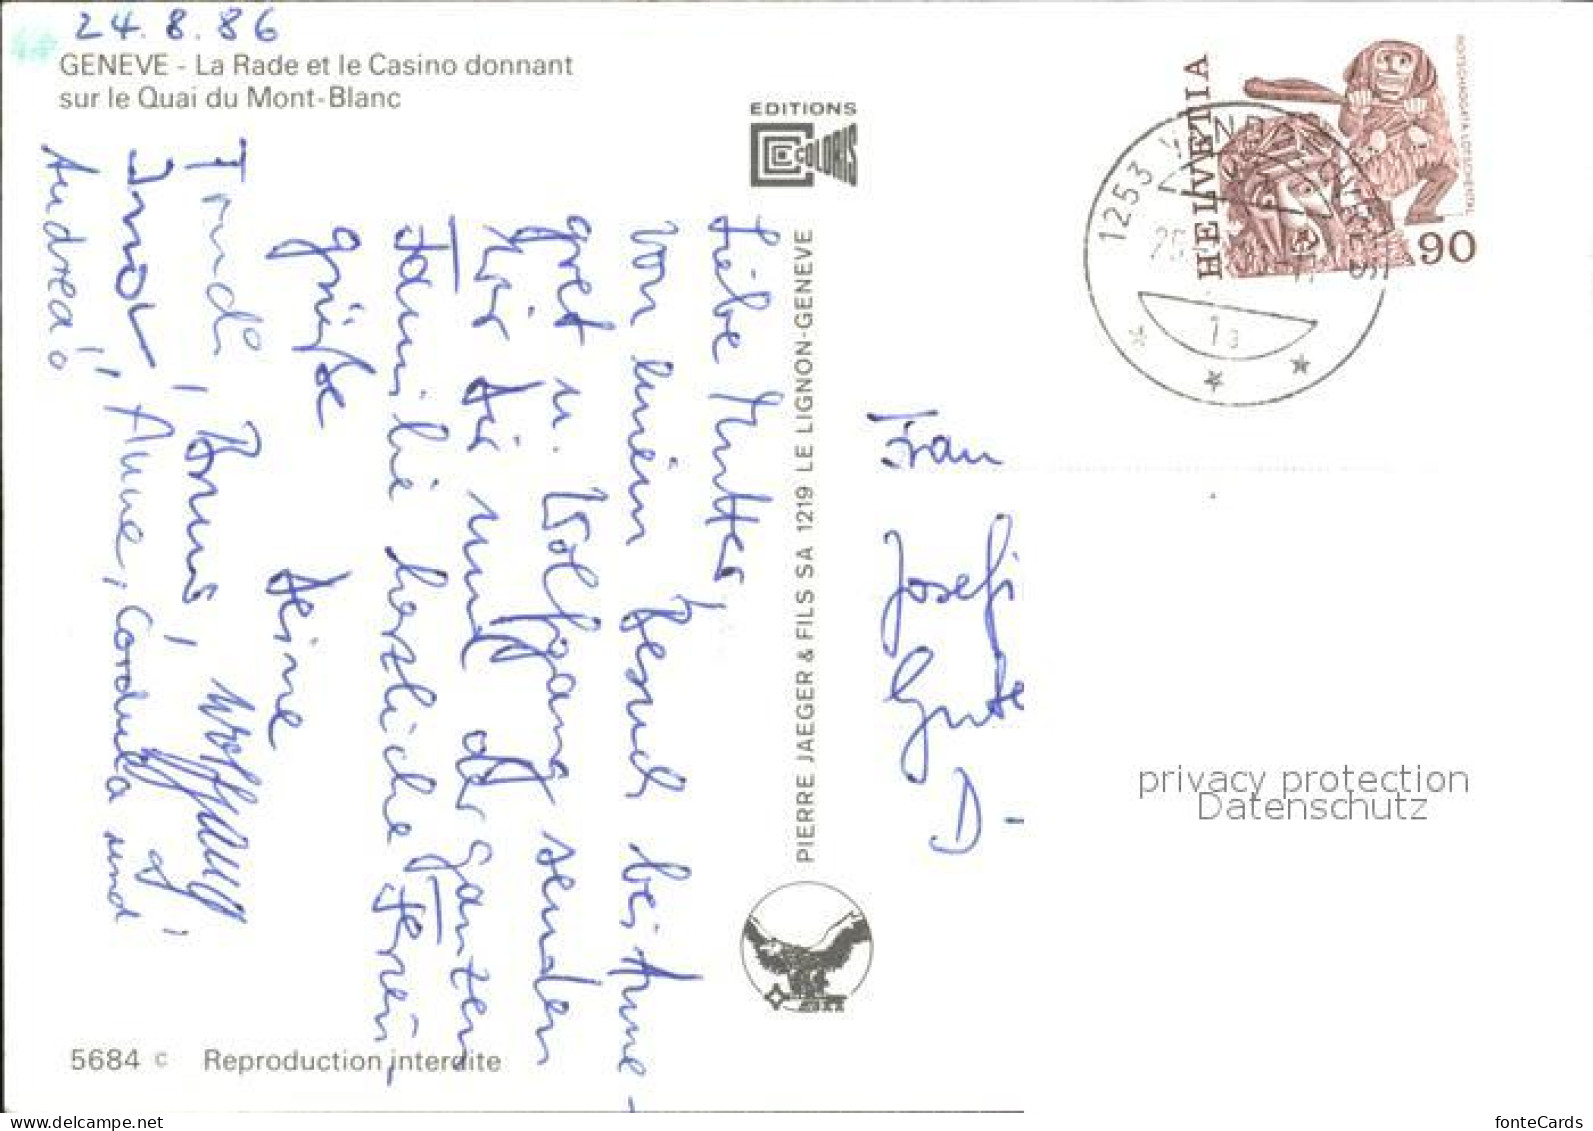 24. 8. 86
GENEVE - La Rade et le Casino donnant
sur le Quai du Mont-Blanc
EDITIONS
COLORIS
PIERRE JAEGER & FILS SA 1219 LE LIGNON-GENEVE
Liebe Mutter,
von einem Besuch bei Anne-
gret u. Wolfgang senden
wir dir und der ganzen
Familie herzliche Ferien-
grüße
deine
Trudi, Bruno, Wolfgang,
Anne, Cordula und
Andrea!
HELVETIA
90
ROITSCHÄGGÄTA LÖTSCHENTAL
1253
1a
Frau
Josefi
Gute
D-
privacy protection
Datenschutz
5684 c Reproduction interdite
www.delcampe.net
fonteCards